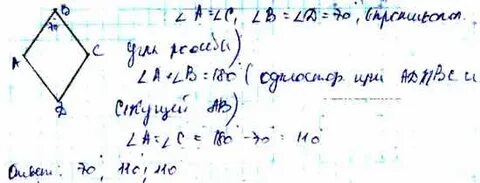 B
70
A
C
D
∠A=∠C, ∠B=∠D=70°, (противопол.
углы ромба)
∠A+∠B=180° (одностор. при AD∥BC и
секущей AB)
∠A=∠C = 180 - 70 = 110
Ответ: 70; 110; 110